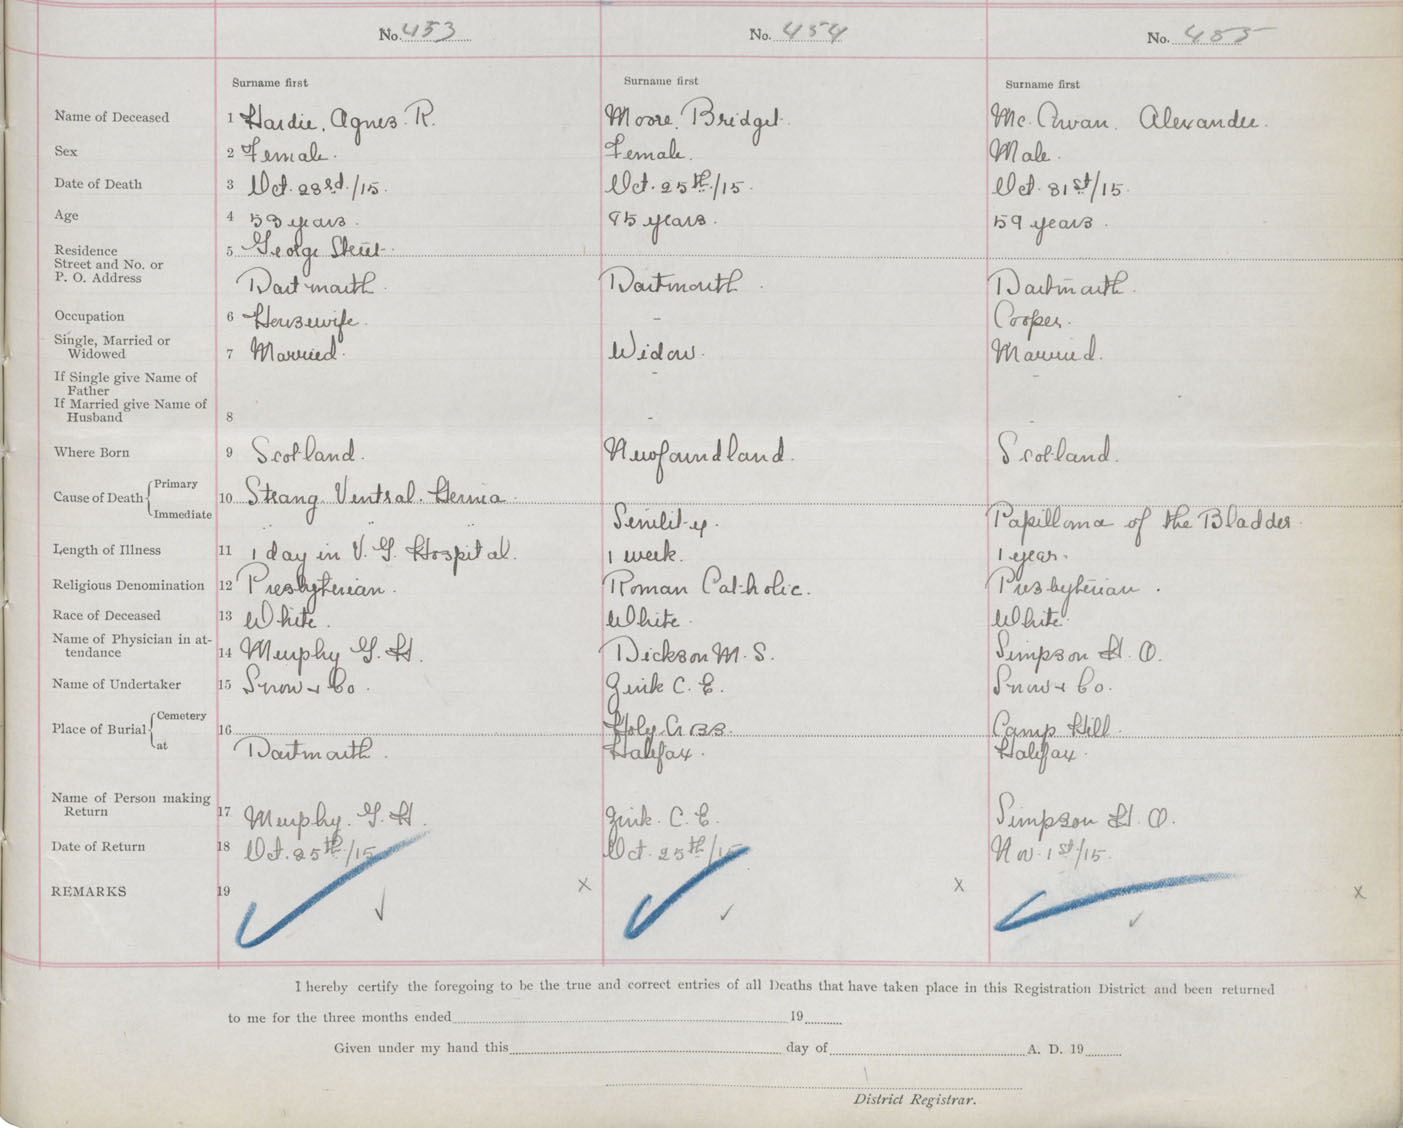 No. 453 No. 454 No. 455
Surname first Surname first Surname first
Name of Deceased 1 Hardie, Agnes R. Moore, Bridget. Mc. Ewan. Alexander.
Sex 2 Female. Female. Male.
Date of Death 3 Oct. 23rd./15. Oct. 25th./15. Oct. 31st/15.
Age 4 53 years. 85 years. 59 years.
Residence 5 George Street.
Street and No. or
P. O. Address Dartmouth. Dartmouth. Dartmouth.
Occupation 6 Housewife. - Cooper.
Single, Married or
Widowed 7 Married. Widow. Married.
If Single give Name of - -
Father
If Married give Name of
Husband 8 - -
Where Born 9 Scotland. Newfoundland. Scotland.
Cause of Death Primary 10 Strang. Ventral. Hernia.
Immediate " " " Senility. Papilloma of the Bladder.
Length of Illness 11 1 day in V. G. Hospital. 1 week. 1 year.
Religious Denomination 12 Presbyterian. Roman Catholic. Presbyterian.
Race of Deceased 13 White. White. White.
Name of Physician in at-
tendance 14 Murphy G. H. Dickson M. S. Simpson H. O.
Name of Undertaker 15 Snow & Co. Zink C. E. Snow & Co.
Place of Burial Cemetery 16 Holy Cross. Camp Hill.
at Dartmouth. Halifax. Halifax.
Name of Person making
Return 17 Murphy. G. H. Zink. C. E. Simpson H. O.
Date of Return 18 Oct. 25th./15 Oct. 25th/15 Nov. 1st/15.
REMARKS 19 x x x
I hereby certify the foregoing to be the true and correct entries of all Deaths that have taken place in this Registration District and been returned
to me for the three months ended 19
Given under my hand this day of A. D. 19
District Registrar.